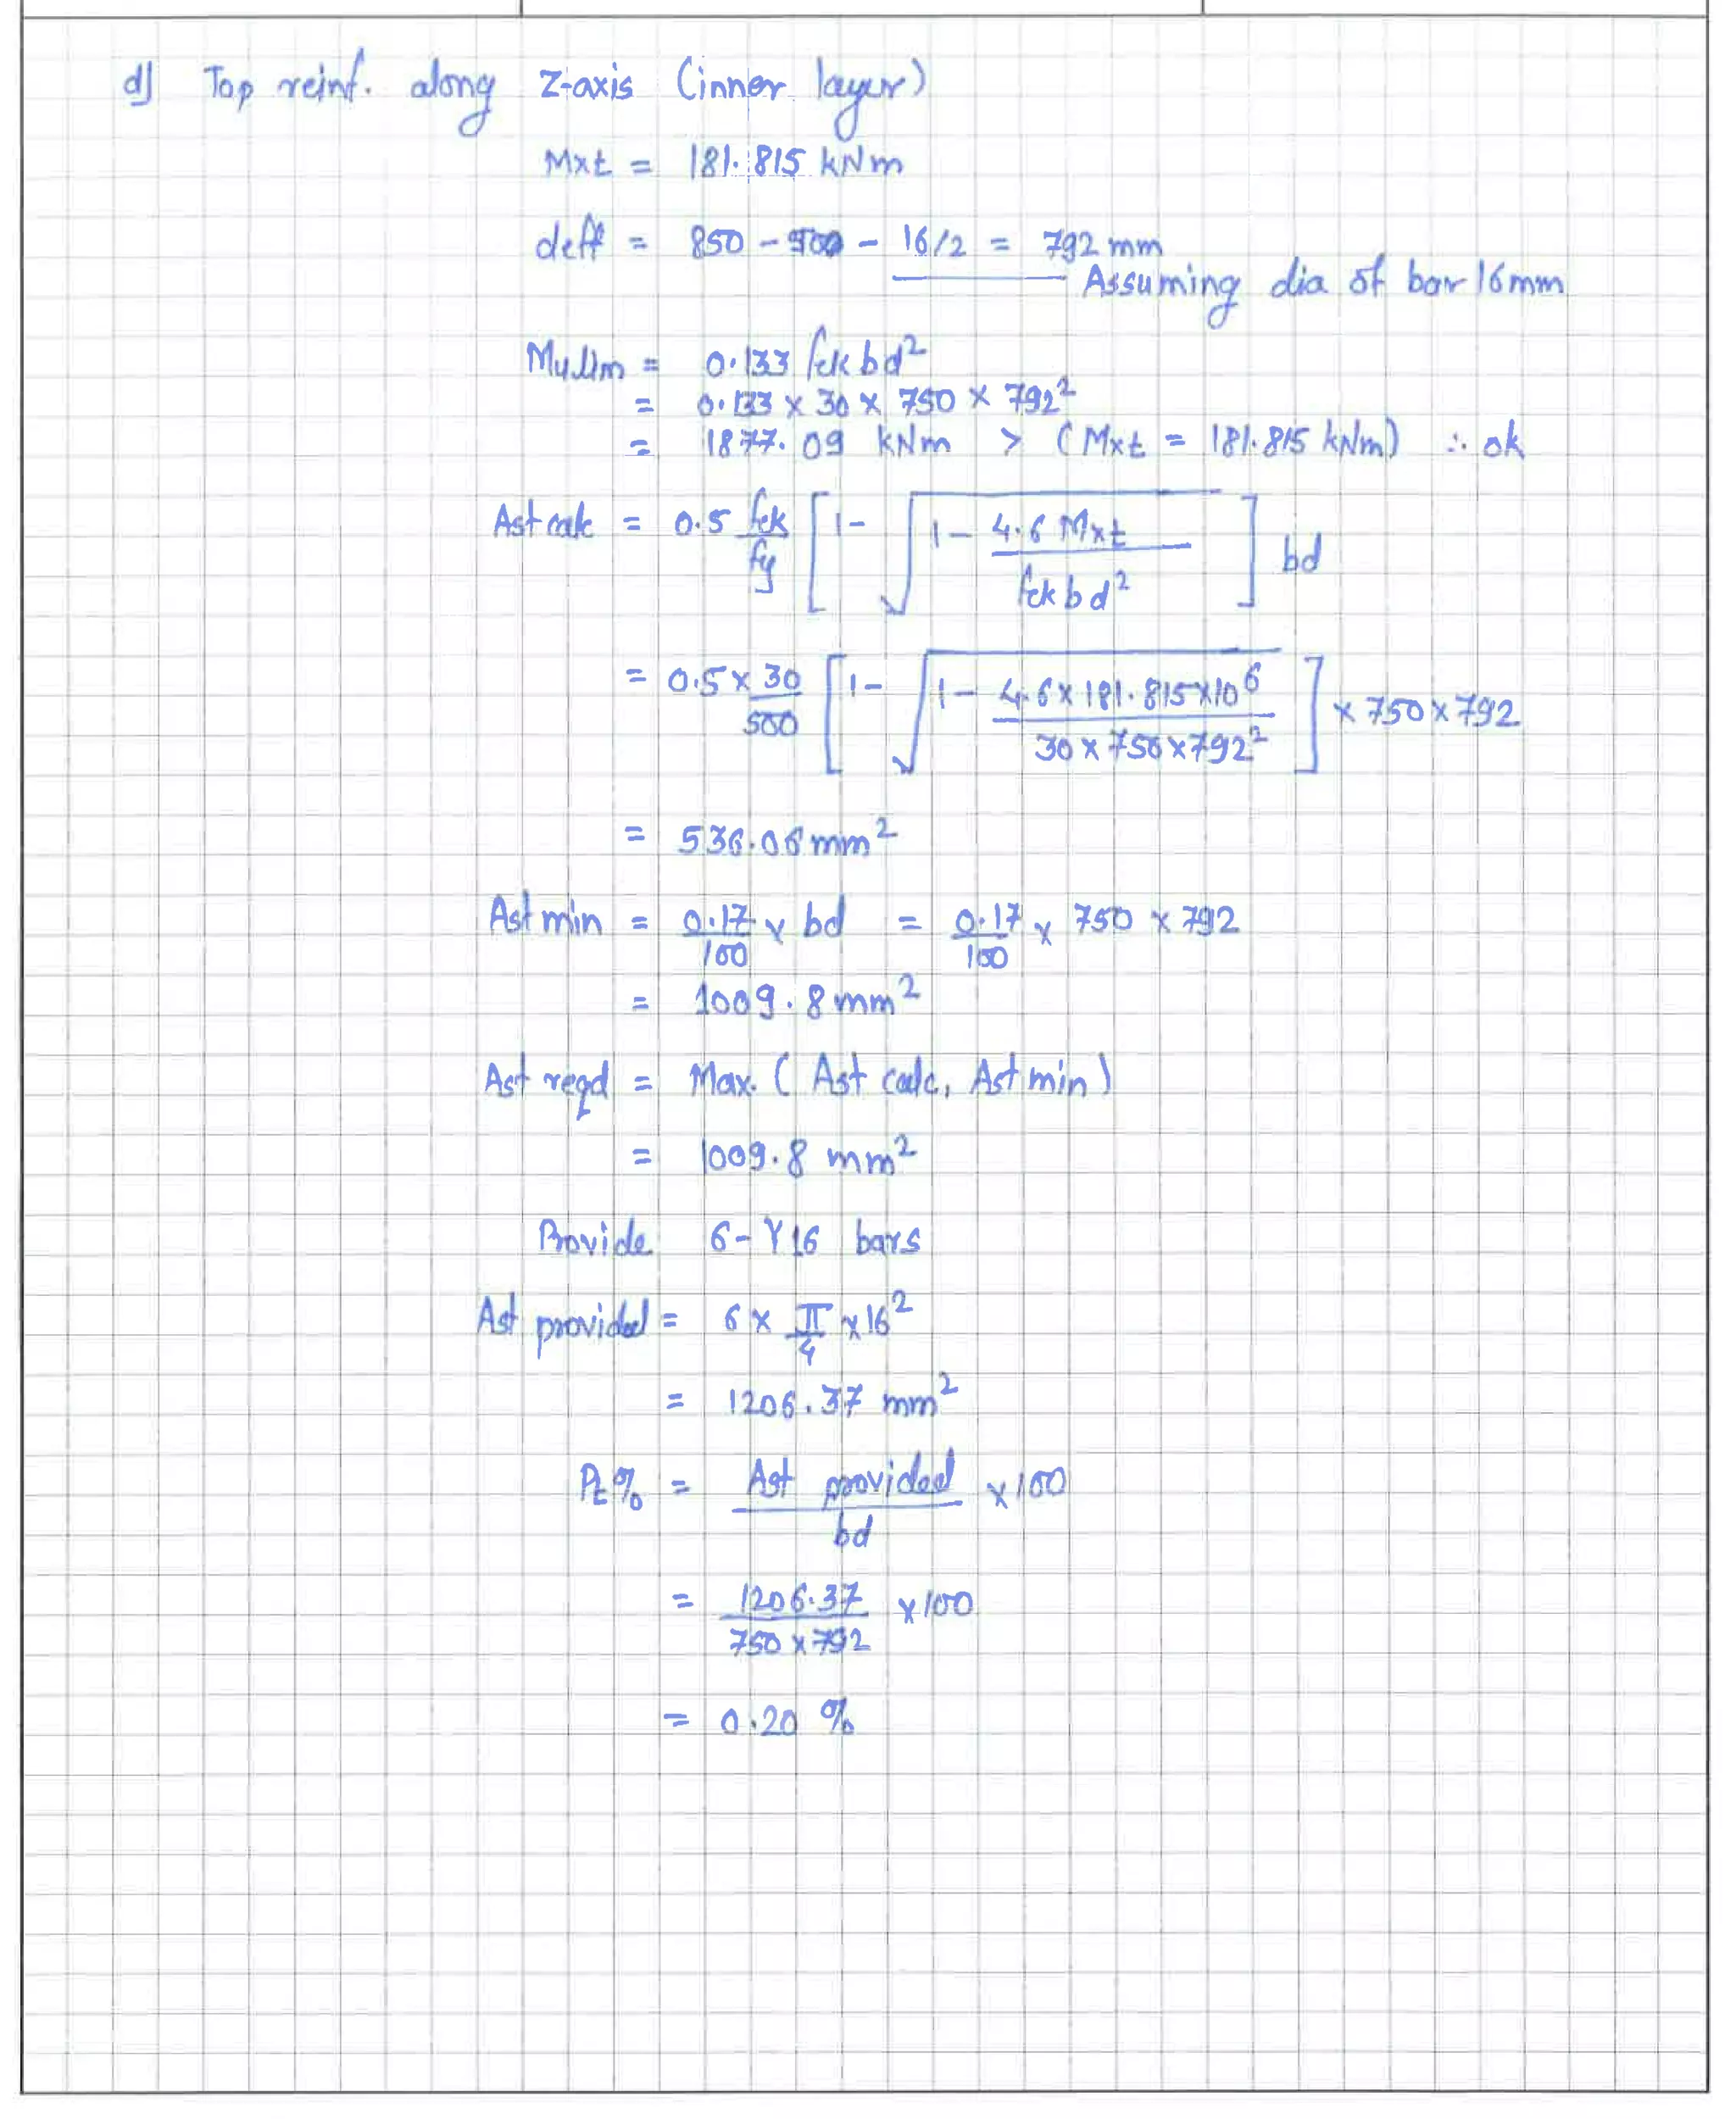 d) Top reinf. along Z-axis (inner layer)
Mxt = 181.815 kNm
deff = 850 - - 16/2 = 792 mm
Assuming dia of bar 16mm
Mulim = 0.133 fck bd²
= 0.133 x 30 x 750 x 792²
= 1877.09 kNm > (Mxt = 181.815 kNm) ∴ ok
Ast calc = 0.5 fck/fy [1 - √(1 - 4.6 Mxt/fck bd²)] bd
= 0.5 x 30/500 [1 - √(1 - 4.6 x 181.815 x 10⁶/30 x 750 x 792²)] x 750 x 792
= 536.06 mm²
Ast min = 0.17/100 x bd = 0.17/100 x 750 x 792
= 1009.8 mm²
Ast reqd = Max. (Ast calc, Ast min)
= 1009.8 mm²
Provide 6-Y16 bars
Ast provided = 6 x π/4 x 16²
= 1206.37 mm²
Pt% = Ast provided/bd x 100
= 1206.37/750 x 792 x 100
= 0.20 %